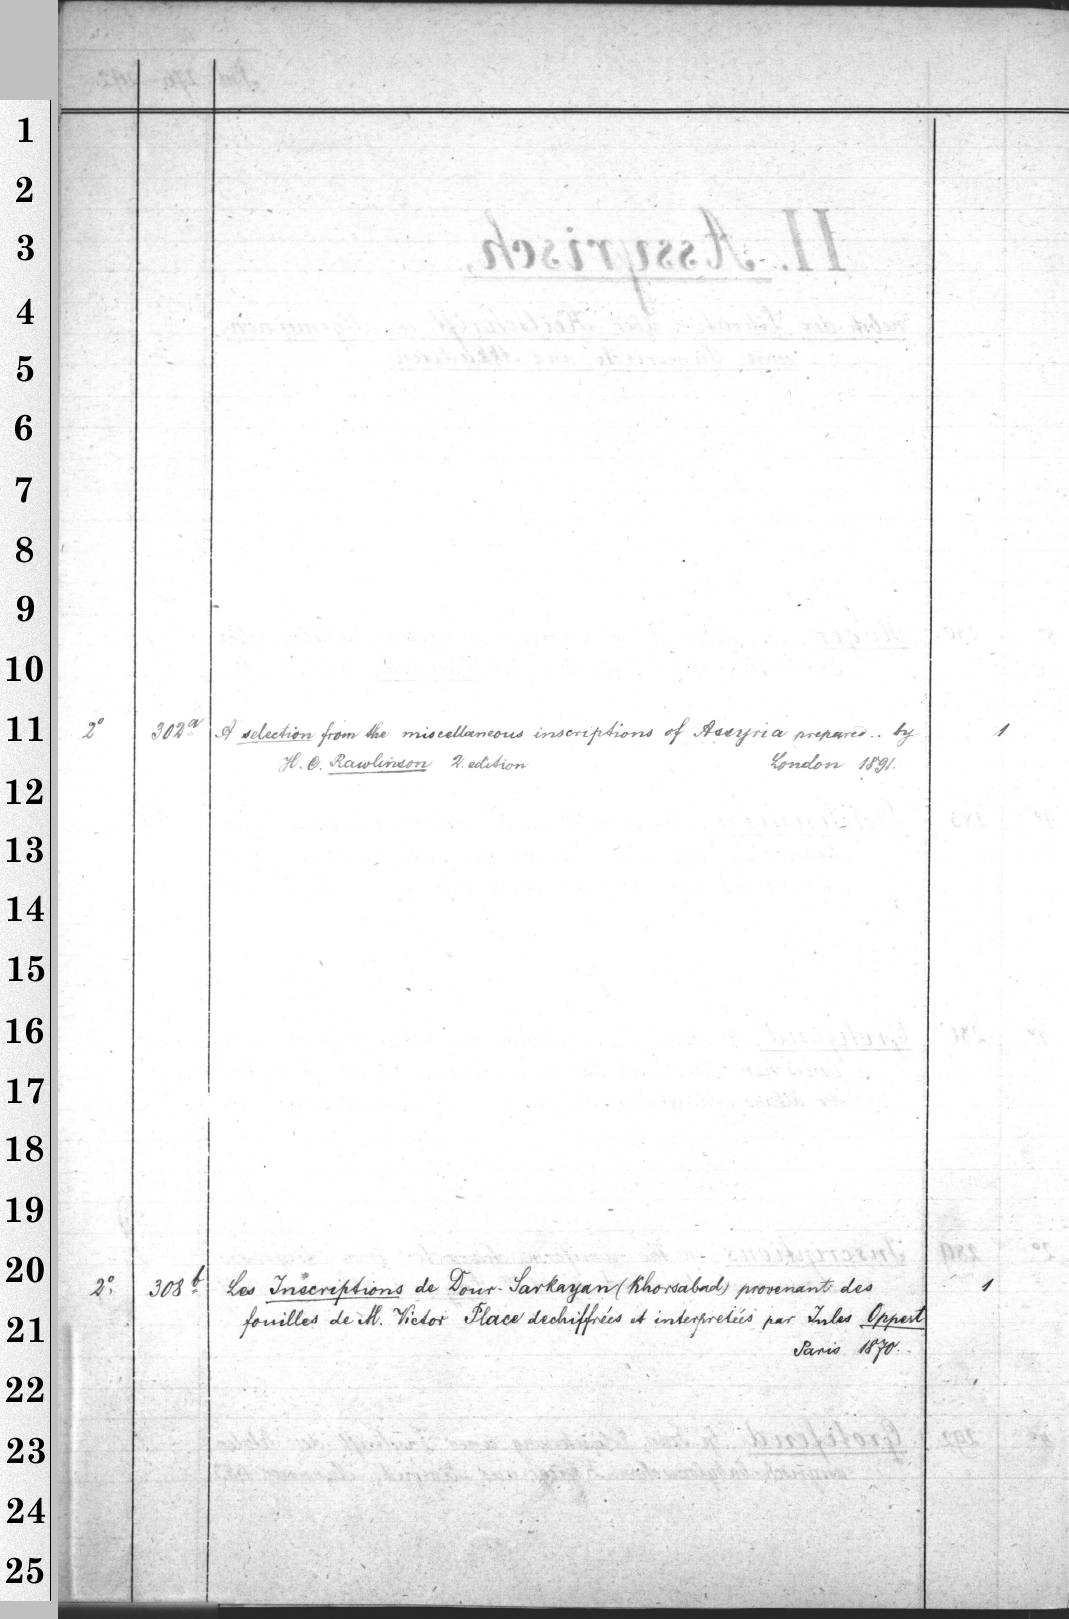 1
2
3
4
5
6
7
8
9
10
11 2° 302a A selection from the miscellaneous inscriptions of Assyria prepared.. by 1
H. C. Rawlinson 2. edition London 1891.
12
13
14
15
16
17
18
19
20 2° 308b Les Inscriptions de Dour-Sarkayan (Khorsabad) provenant des 1
21 fouilles de M. Victor Place dechiffrées et interpretées par Jules Oppert
Paris 1870.
22
23
24
25